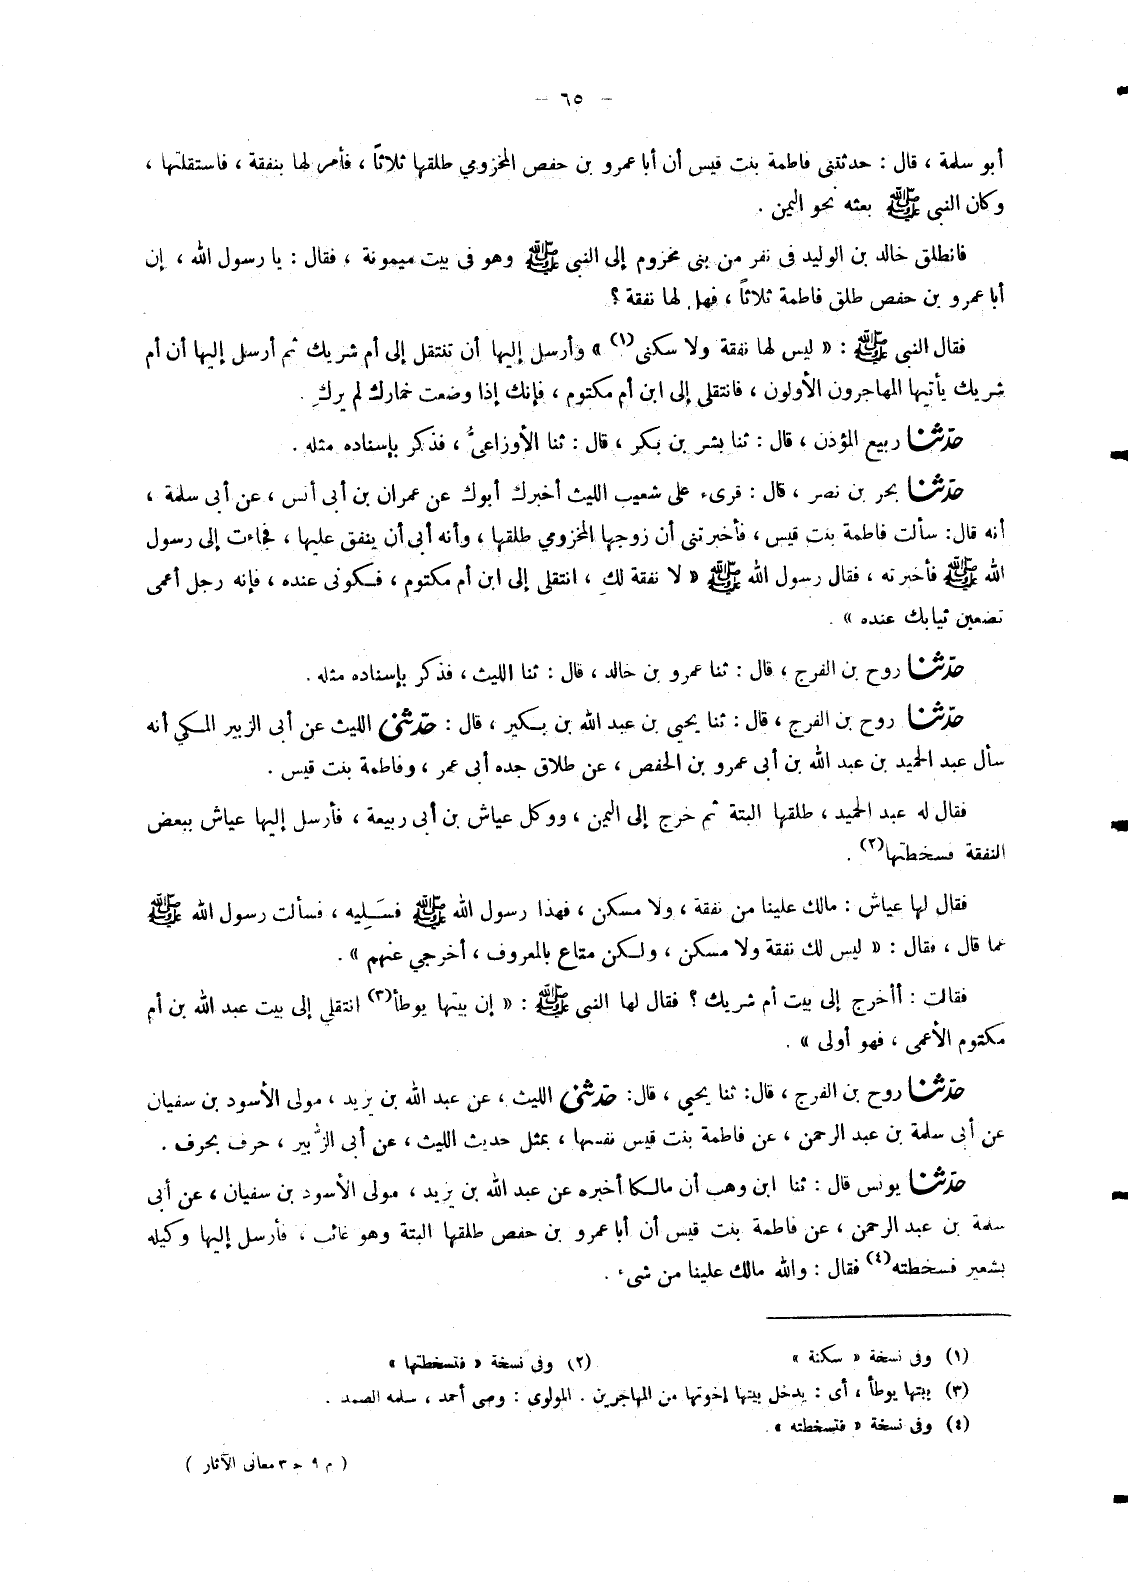 - ٦٥ -
أبو سلمة ، قال : حدثتنى فاطمة بنت قيس أن أبا عمرو بن حفص المخزومي طلقها ثلاثاً ، فأمر لها بنفقة ، فاستقلتها ،
وكان النبى ﷺ بعثه نحو اليمن .
فانطلق خالد بن الوليد فى نفر من بنى مخزوم إلى النبى ﷺ وهو فى بيت ميمونة ، فقال : يا رسول الله ، إن
أبا عمرو بن حفص طلق فاطمة ثلاثاً ، فهل لها نفقة ؟
فقال النبى ﷺ : « ليس لها نفقة ولا سكنى(١) » وأرسل إليها أن تنتقل إلى أم شريك ثم أرسل إليها أن أم
شريك يأتيها المهاجرون الأولون ، فانتقلي إلى ابن أم مكتوم ، فإنك إذا وضعت خمارك لم يركِ .
حدّثنا ربيع المؤذن ، قال : ثنا بشر بن بكر ، قال : ثنا الأوزاعىُّ ، فذكر بإسناده مثله .
حدّثنا بحر بن نصر ، قال : قرىء على شعيب الليث أخبرك أبوك عن عمران بن أبى أنس ، عن أبى سلمة ،
أنه قال: سألت فاطمة بنت قيس ، فأخبرتنى أن زوجها المخزومي طلقها ، وأنه أبى أن ينفق عليها ، فجاءت إلى رسول
الله ﷺ فأخبرته ، فقال رسول الله ﷺ « لا نفقة لكِ ، انتقلى إلى ابن أم مكتوم ، فكونى عنده ، فإنه رجل أعمى
تضعين ثيابك عنده » .
حدّثنا روح بن الفرج ، قال : ثنا عمرو بن خالد ، قال : ثنا الليث ، فذكر بإسناده مثله .
حدّثنا روح بن الفرج ، قال : ثنا يحيى بن عبد الله بن بكير ، قال : حدّثنى الليث عن أبى الزبير المكي أنه
سأل عبد الحميد بن عبد الله بن أبى عمرو بن الحفص ، عن طلاق جده أبى عمر ، وفاطمة بنت قيس .
فقال له عبد الحميد ، طلقها البتة ثم خرج إلى اليمن ، ووكل عياش بن أبى ربيعة ، فأرسل إليها عياش ببعض
النفقة فسخطتها(٢) .
فقال لها عياش : مالك علينا من نفقة ، ولا مسكن ، فهذا رسول الله ﷺ فسَلِيه ، فسألت رسول الله ﷺ
عما قال ، فقال : « ليس لك نفقة ولا مسكن ، ولكن متاع بالمعروف ، أخرجي عنهم » .
فقالت : أأخرج إلى بيت أم شريك ؟ فقال لها النبى ﷺ : « إن بيتها يوطأ(٣) انتقلي إلى بيت عبد الله بن أم
مكتوم الأعمى ، فهو أولى » .
حدّثنا روح بن الفرج ، قال: ثنا يحيى ، قال: حدّثنى الليث ، عن عبد الله بن يزيد ، مولى الأسود بن سفيان
عن أبى سلمة بن عبد الرحمن ، عن فاطمة بنت قيس نفسها ، بمثل حديث الليث ، عن أبى الزُّبير ، حرف بحرف .
حدّثنا يونس قال : ثنا ابن وهب أن مالكا أخبره عن عبد الله بن يزيد ، مولى الأسود بن سفيان ، عن أبى
سلمة بن عبد الرحمن ، عن فاطمة بنت قيس أن أبا عمرو بن حفص طلقها البتة وهو غائب ، فأرسل إليها وكيله
بشعير فسخطته(٤) فقال : والله مالك علينا من شىء .
(١) وفى نسخة « سكنة » (٢) وفى نسخة « فتسخطتها »
(٣) بيتها يوطأ ، أى : يدخل بيتها إخوتها من المهاجرين . المولوى : وصى أحمد ، سلمه الصمد .
(٤) وفى نسخة « فتسخطته » .
( م ٩ ج ٣ معانى الآثار )